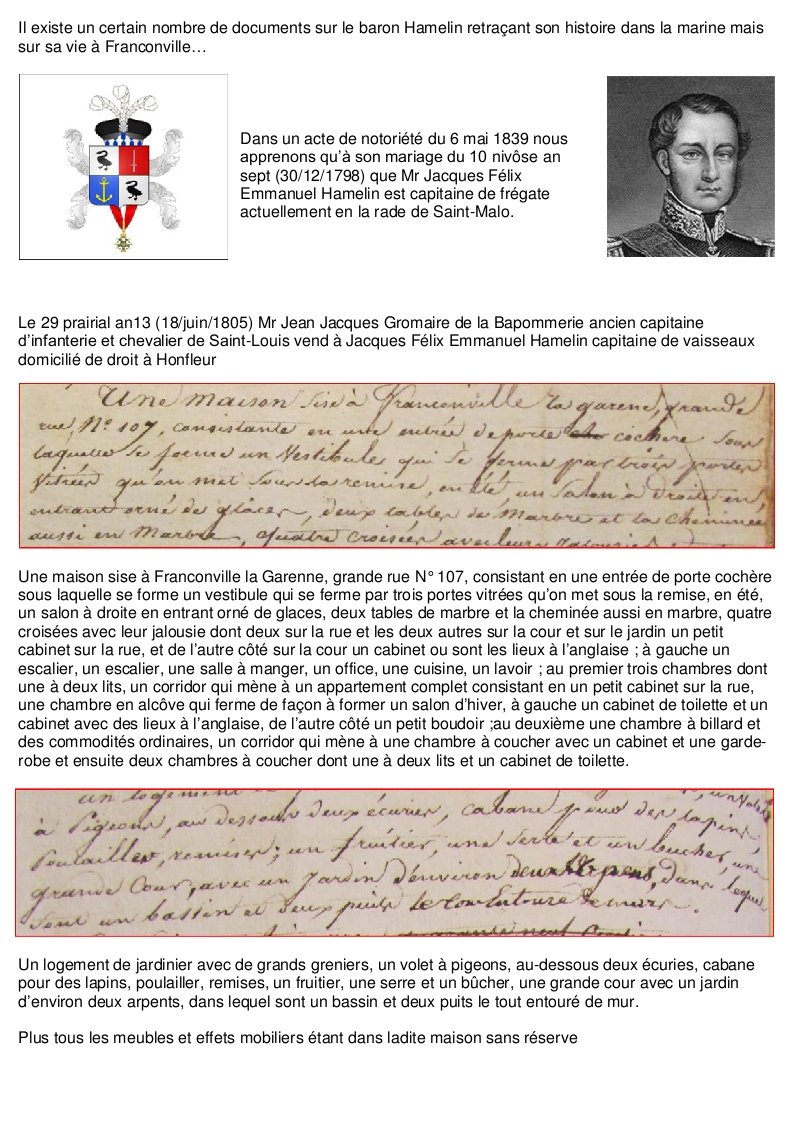 Il existe un certain nombre de documents sur le baron Hamelin retraçant son histoire dans la marine mais
sur sa vie à Franconville…
Dans un acte de notoriété du 6 mai 1839 nous
apprenons qu’à son mariage du 10 nivôse an
sept (30/12/1798) que Mr Jacques Félix
Emmanuel Hamelin est capitaine de frégate
actuellement en la rade de Saint-Malo.
Le 29 prairial an13 (18/juin/1805) Mr Jean Jacques Gromaire de la Bapommerie ancien capitaine
d’infanterie et chevalier de Saint-Louis vend à Jacques Félix Emmanuel Hamelin capitaine de vaisseaux
domicilié de droit à Honfleur
Une maison sise à Franconville la garene, grande
rue, N° 107, consistante en une entrée de porte cochere sous
laquelle se forme un Vestibule qui se ferme par trois portes
Vitrées qu'on met sous la remise, en été, un Salon à droite en
entrant orné de glaces, deux tables de Marbre et la cheminée
aussi en Marbre, quatre croisées avec leurs Jalousies
Une maison sise à Franconville la Garenne, grande rue N° 107, consistant en une entrée de porte cochère
sous laquelle se forme un vestibule qui se ferme par trois portes vitrées qu’on met sous la remise, en été,
un salon à droite en entrant orné de glaces, deux tables de marbre et la cheminée aussi en marbre, quatre
croisées avec leur jalousie dont deux sur la rue et les deux autres sur la cour et sur le jardin un petit
cabinet sur la rue, et de l’autre côté sur la cour un cabinet ou sont les lieux à l’anglaise ; à gauche un
escalier, un escalier, une salle à manger, un office, une cuisine, un lavoir ; au premier trois chambres dont
une à deux lits, un corridor qui mène à un appartement complet consistant en un petit cabinet sur la rue,
une chambre en alcôve qui ferme de façon à former un salon d’hiver, à gauche un cabinet de toilette et un
cabinet avec des lieux à l’anglaise, de l’autre côté un petit boudoir ;au deuxième une chambre à billard et
des commodités ordinaires, un corridor qui mène à une chambre à coucher avec un cabinet et une garde-
robe et ensuite deux chambres à coucher dont une à deux lits et un cabinet de toilette.
un logement de un Volet
à Pigeons, au dessous deux écuries, cabane pour des lapins,
Poulailler, remises; un fruitier, une Serre et un bucher, une
grande Cour, avec un Jardin d'environ deux Arpens, dans lequel
sont un bassin et deux puits le tout entouré de murs.
Un logement de jardinier avec de grands greniers, un volet à pigeons, au-dessous deux écuries, cabane
pour des lapins, poulailler, remises, un fruitier, une serre et un bûcher, une grande cour avec un jardin
d’environ deux arpents, dans lequel sont un bassin et deux puits le tout entouré de mur.
Plus tous les meubles et effets mobiliers étant dans ladite maison sans réserve